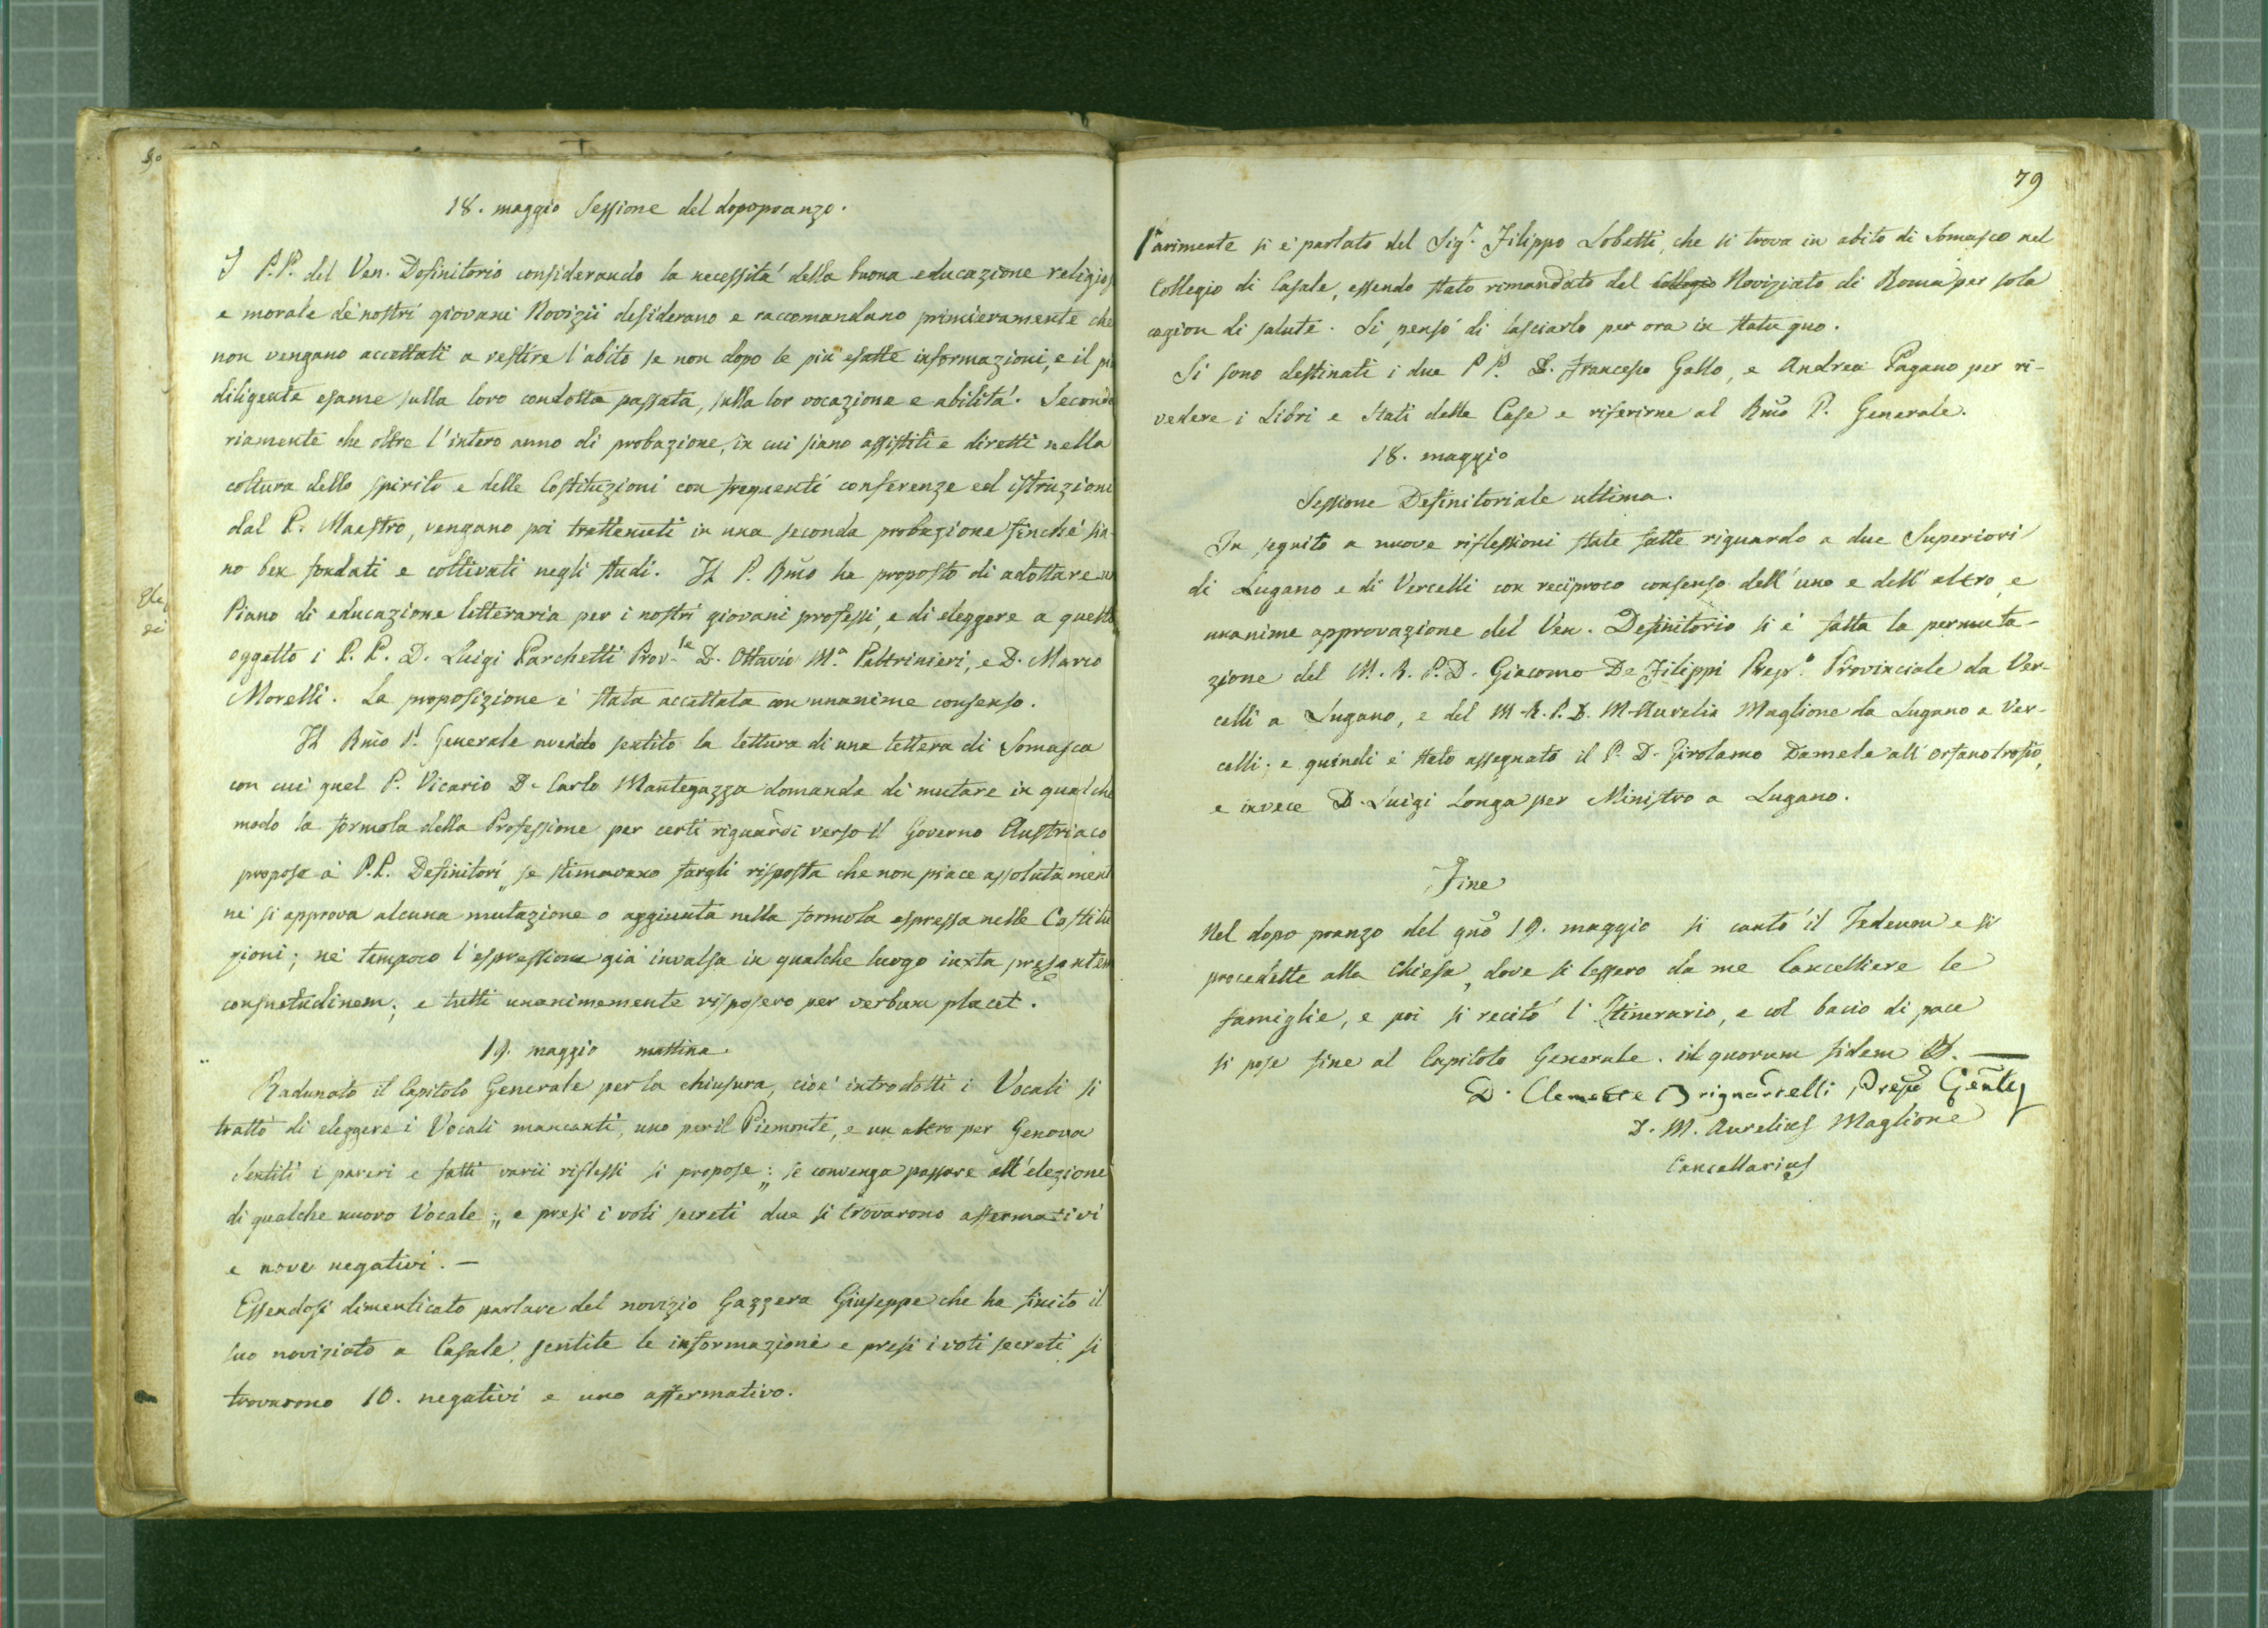 18. maggio Sessione del dopopranzo.
I P.P. del Ven. Definitorio considerando la necessitá della buona educazione religios
e morale de' nostri giovani Novizii desiderano e raccomandano primieramente che
non vengano accettati a vestire l'abito se non dopo le piú esatte informazioni, e il piú
diligente esame sulla loro condotta passata, sulla lor vocazione e abilitá. Seconda
riamente che oltre l'intero anno di probazione, in cui siano assistiti e diretti nella
coltura dello spirito e delle Costituzioni con frequenti conferenze ed istruzioni
dal P. Maestro, vengano poi trattenuti in una seconda probazione finché sia-
no ben fondati e coltivati negli studi. Il P. Rm̃o ha proposto di adottare un
Piano di educazione letteraria per i nostri giovani professi, e di eleggere a questo
oggetto i P.P. D. Luigi Parchetti Prov.le D. Ottavio M.a Paltrinieri, e D. Marco
Morelli. La proposizione é stata accettata con unanime consenso.
Il Rm̃o P. Generale avendo sentito la lettura di una lettera di Somasca
con cui quel P. Vicario D. Carlo Mantegazza domanda di mutare in qualche
modo la formola della Professione per certi riguardi verso il Governo Austriaco
propose a' P.P. Definitori „ se stimavano fargli risposta che non piace assolutament
né si approva alcuna mutazione o aggiunta nella formola espressa nelle Costitu
zioni; né tampoco l'espressione giá invalsa in qualche luogo iuxta presentem
consuetudinem; e tutti unanimemente risposero per verbum placet.
19. maggio mattina.
Radunato il Capitolo Generale per la chiusura, cioé introdotti i Vocali si
trattó di eleggere i Vocali mancanti, uno per il Piemonte, e un altro per Genova
Sentiti i pareri e fatti varii riflessi si propose: „ se convenga passare all'elezione
di qualche nuovo Vocale; „ e presi i voti secreti due si trovarono affermativi
e nove negativi. —
Essendosi dimenticato parlare del novizio Gazzera Giuseppe che ha finito il
suo noviziato a Casale, sentite le informazioni e presi i voti secreti si
trovarono 10. negativi e uno affermativo.
79
Parimente si é parlato del Sig.r Filippo Lobetti, che si trova in abito di Somasco nel
Collegio di Casale, essendo stato rimandato del Collegio Noviziato di Roma per sola
cagion di salute. Si pensó di lasciarlo per ora in statu quo.
Si sono destinati i due P P. D. Francesco Gallo, e Andrea Pagano per ri-
vedere i Libri e Stati delle Case e riferirne al Rm̃o P. Generale.
18. maggio
Sessione Definitoriale ultima.
In seguito a nuove riflessioni state fatte riguardo a due Superiori
di Lugano e di Vercelli con reciproco consenso dell'uno e dell'altro, e
unanime approvazione del Ven. Definitorio si é fatta la permuta-
zione del M. R. P. D. Giacomo De Filippi Prep.o Provinciale da Ver-
celli a Lugano, e del M. R. P. D. M. Aurelio Maglione da Lugano a Ver-
celli; e quindi é stato assegnato il P. D. Girolamo Damele all'orfanotrofio,
e invece D. Luigi Longa per Ministro a Lugano.
Fine
Nel dopo pranzo del gño 19. maggio si cantó il Tedeum e si
procedette alla Chiesa, dove si lessero da me Cancelliere le
famiglie, e poi si recitó l'Itinerario, e col bacio di pace
si pose fine al Capitolo Generale. in quorum fidem
D. Clemente Brignardelli Prepo Gen̄le
D. M. Aurelius Maglione
Cancellarius